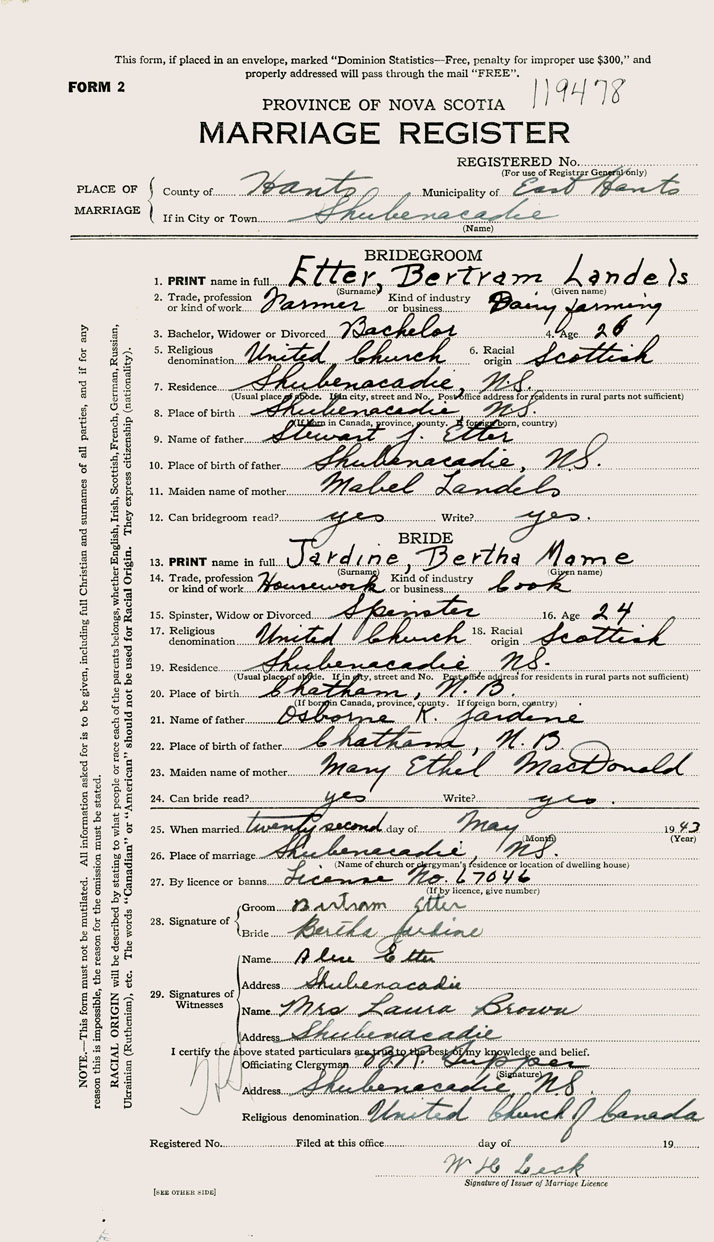 This form, if placed in an envelope, marked "Dominion Statistics—Free, penalty for improper use $300," and
properly addressed will pass through the mail "FREE".
FORM 2
119478
PROVINCE OF NOVA SCOTIA
MARRIAGE REGISTER
REGISTERED No.
(For use of Registrar General only)
PLACE OF MARRIAGE
County of Hants Municipality of East Hants
If in City or Town Shubenacadie
(Name)
BRIDEGROOM
1. PRINT name in full Etter, Bertram Landels
(Surname) (Given name)
2. Trade, profession or kind of work Farmer Kind of industry or business Dairy farming
3. Bachelor, Widower or Divorced Bachelor 4. Age 26
5. Religious denomination United Church 6. Racial origin Scottish
7. Residence Shubenacadie, N.S.
(Usual place of abode. If in city, street and No. Post office address for residents in rural parts not sufficient)
8. Place of birth Shubenacadie N.S.
(If born in Canada, province, county. If foreign born, country)
9. Name of father Stewart J. Etter
10. Place of birth of father Shubenacadie, N.S.
11. Maiden name of mother Mabel Landels
12. Can bridegroom read? yes Write? yes.
BRIDE
13. PRINT name in full Jardine, Bertha Mame
(Surname) (Given name)
14. Trade, profession or kind of work Housework Kind of industry or business Cook
15. Spinster, Widow or Divorced Spinster 16. Age 24
17. Religious denomination United Church 18. Racial origin Scottish
19. Residence Shubenacadie N.S.
(Usual place of abode. If in city, street and No. Post office address for residents in rural parts not sufficient)
20. Place of birth Chatham, N.B.
(If born in Canada, province, county. If foreign born, country)
21. Name of father Osborne K. Jardine
22. Place of birth of father Chatham, N.B
23. Maiden name of mother Mary Ethel MacDonald
24. Can bride read? yes Write? yes.
25. When married twenty second day of May 1943
(Month) (Year)
26. Place of marriage Shubenacadie, N.S.
(Name of church or clergyman's residence or location of dwelling house)
27. By licence or banns License No. 67046
(If by licence, give number)
28. Signature of
Groom Bertram Etter
Bride Bertha Jardine
29. Signatures of Witnesses
Name Etter
Address Shubenacadie
Name Mrs Laura Brown
Address Shubenacadie
I certify the above stated particulars are true to the best of my knowledge and belief.
Officiating Clergyman Tupper
(Signature)
Address Shubenacadie, N.S.
Religious denomination United Church of Canada
Registered No. Filed at this office day of 19
W H Leck
Signature of Issuer of Marriage Licence
[SEE OTHER SIDE]
NOTE.—This form must not be mutilated. All information asked for is to be given, including full Christian and surnames of all parties, and if for any
reason this is impossible, the reason for the omission must be stated.
RACIAL ORIGIN will be described by stating to what people or race each of the parents belongs, whether English, Irish, Scottish, French, German, Russian,
Ukrainian (Ruthenian), etc. The words "Canadian" or "American" should not be used for Racial Origin. They express citizenship (nationality).